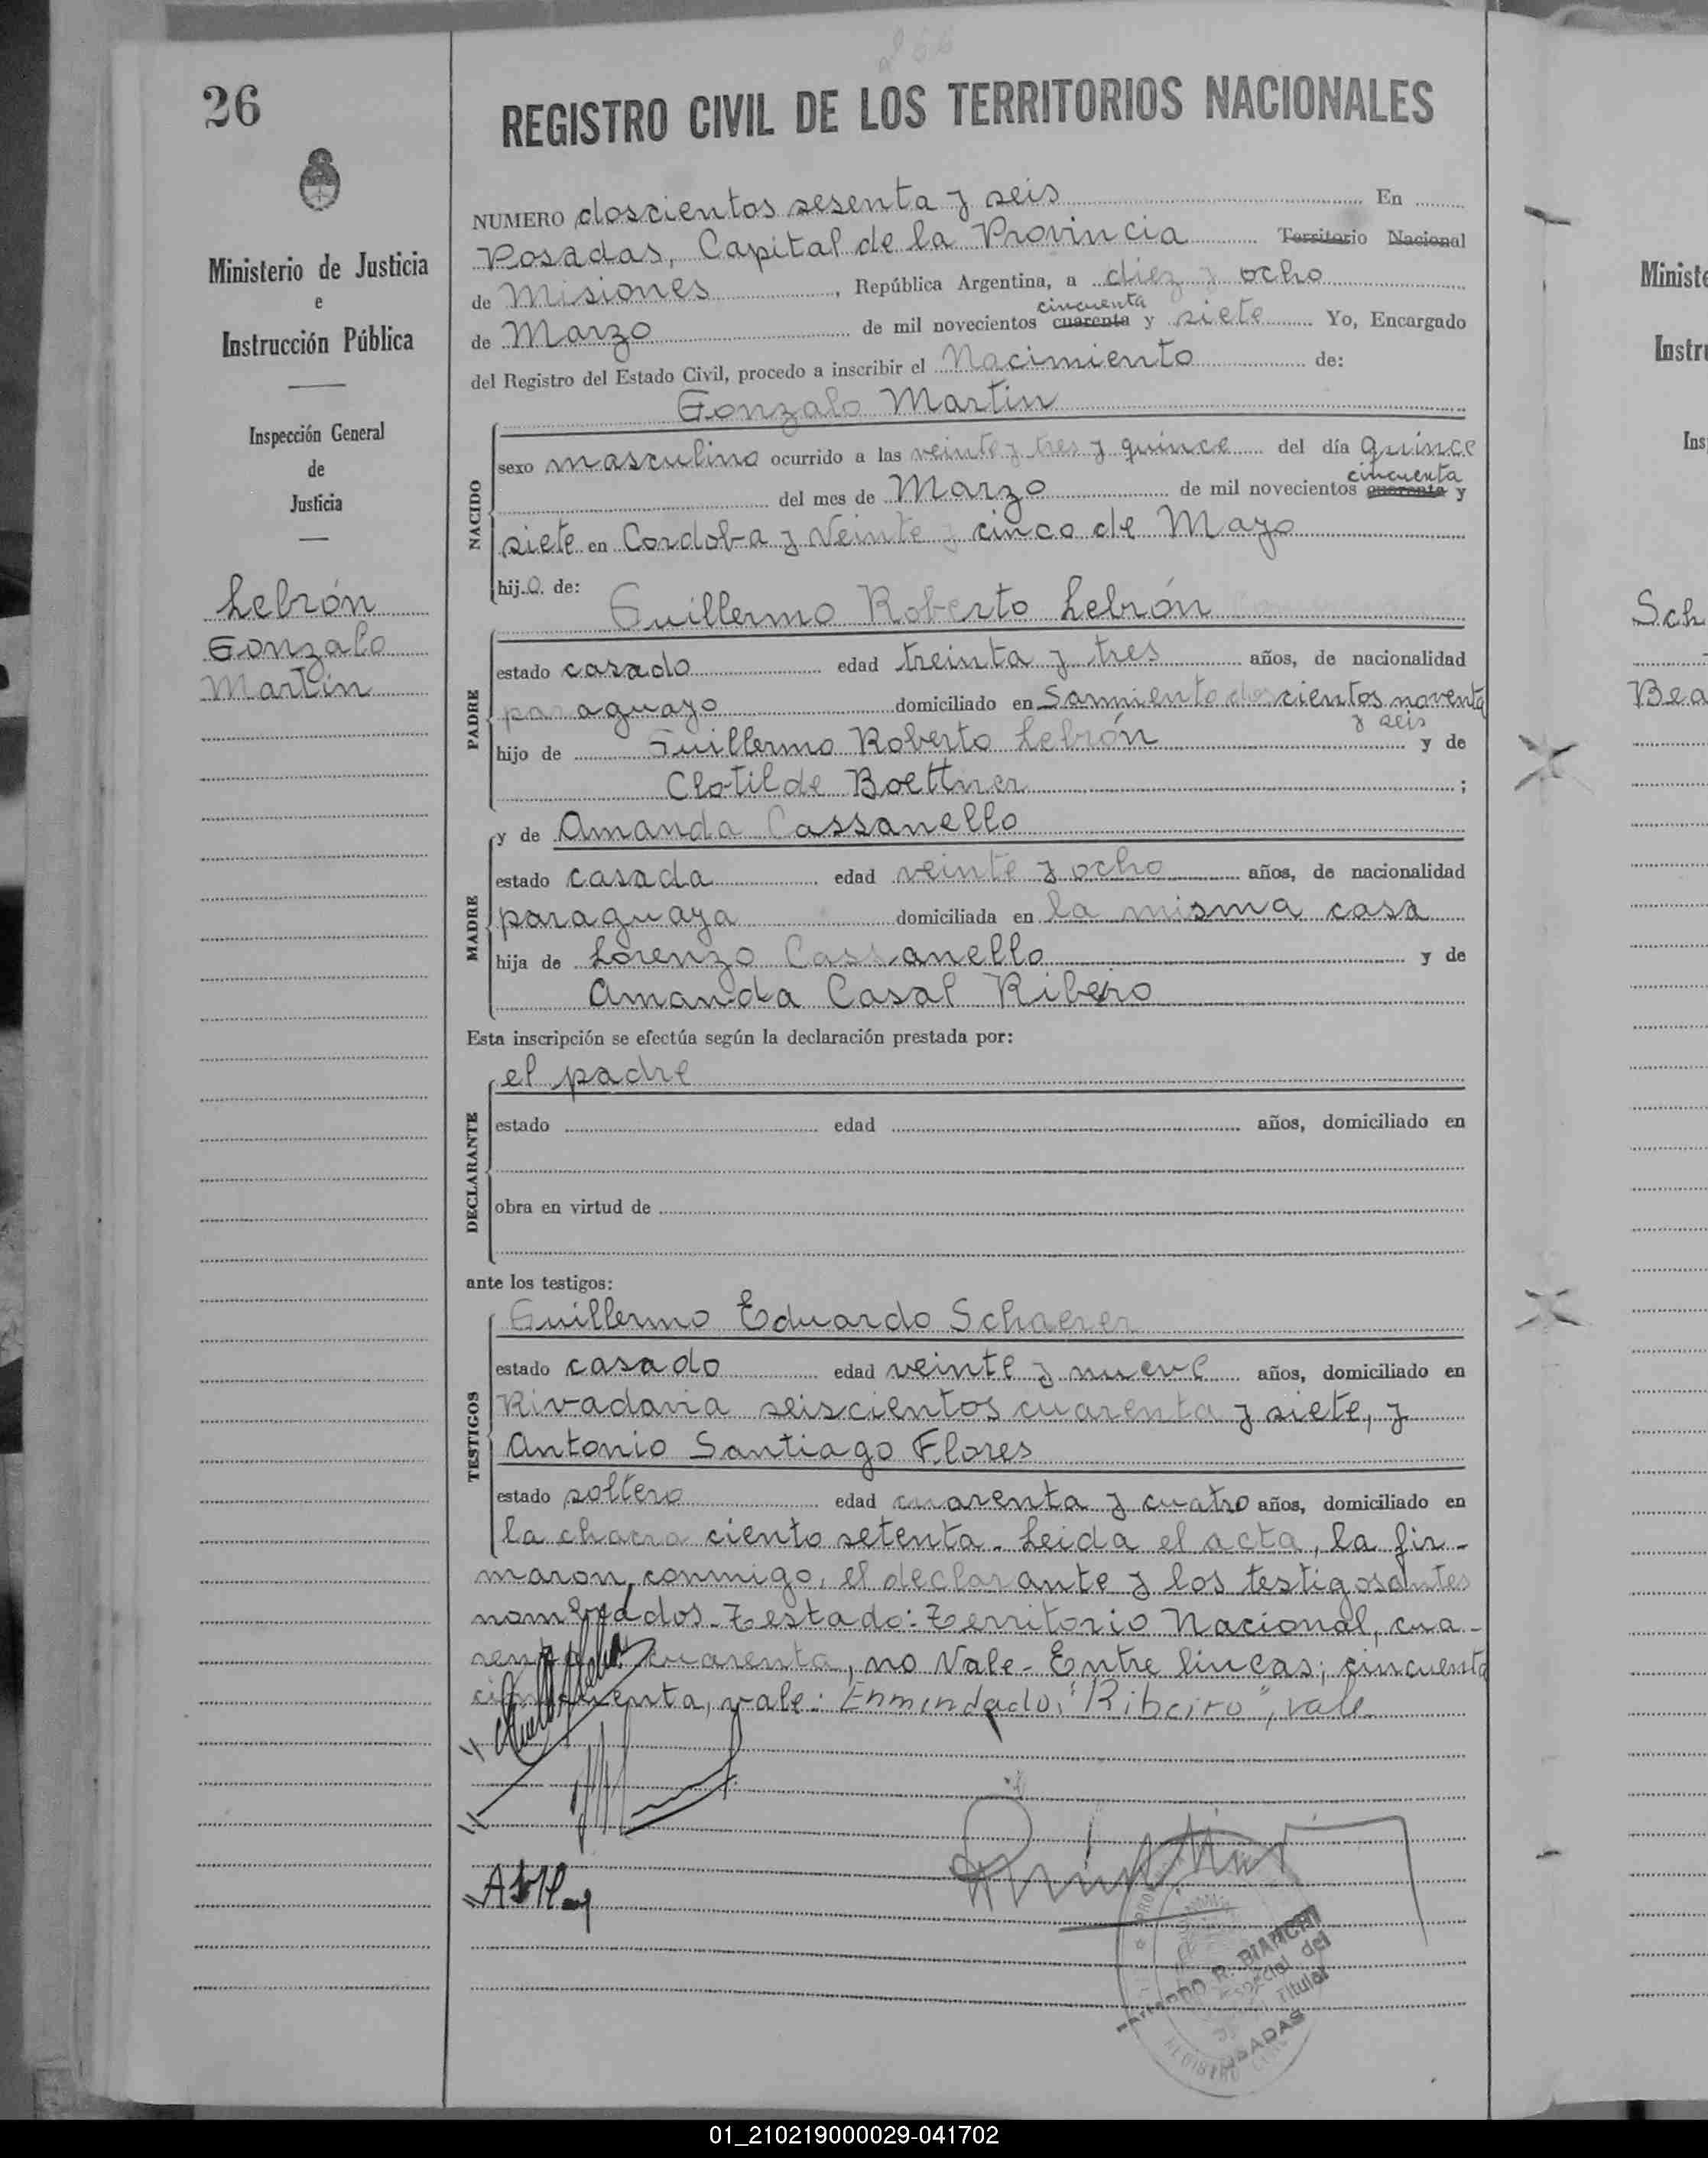 266
26
REGISTRO CIVIL DE LOS TERRITORIOS NACIONALES
Ministerio de Justicia
e
Instrucción Pública
Inspección General
de
Justicia
Lebrón
Gonzalo
Martín
NUMERO doscientos sesenta y seis En
Posadas, Capital de la Provincia Territorio Nacional
de Misiones, República Argentina, a diez y ocho
cincuenta
de Marzo de mil novecientos cuarenta y siete Yo, Encargado
del Registro del Estado Civil, procedo a inscribir el Nacimiento de:
Gonzalo Martín
NACIDO
sexo masculino ocurrido a las veinte y tres y quince del día quince
cincuenta
del mes de Marzo de mil novecientos cuarenta y
siete en Cordoba y Veinte y cinco de Mayo
hijo de: Guillermo Roberto Lebrón
PADRE
estado casado edad treinta y tres años, de nacionalidad
paraguayo domiciliado en Sarmiento doscientos noventa
y seis
hijo de Guillermo Roberto Lebrón y de
Clotilde Boettner ;
y de Amanda Cassanello
MADRE
estado casada edad veinte y ocho años, de nacionalidad
paraguaya domiciliada en la misma casa
hija de Lorenzo Cassanello y de
Amanda Casal Ribeiro
Esta inscripción se efectúa según la declaración prestada por:
el padre
DECLARANTE
estado edad años, domiciliado en
obra en virtud de
ante los testigos:
Guillermo Eduardo Schaerer
TESTIGOS
estado casado edad veinte y nueve años, domiciliado en
Rivadavia seiscientos cuarenta y siete, y
Antonio Santiago Flores
estado soltero edad cuarenta y cuatro años, domiciliado en
la chacra ciento setenta. Leida el acta, la fir-
maron conmigo, el declarante y los testigos antes
nombrados. Testado: Territorio Nacional, cua-
renta, cuarenta, no Vale. Entre lineas; cincuenta
cincuenta, vale: Enmendado: "Ribeiro", vale
R. BIANCHI
Especial del
Titular
POSADAS
Minist
Instr
Ins
Sch
Bea
01_210219000029-041702